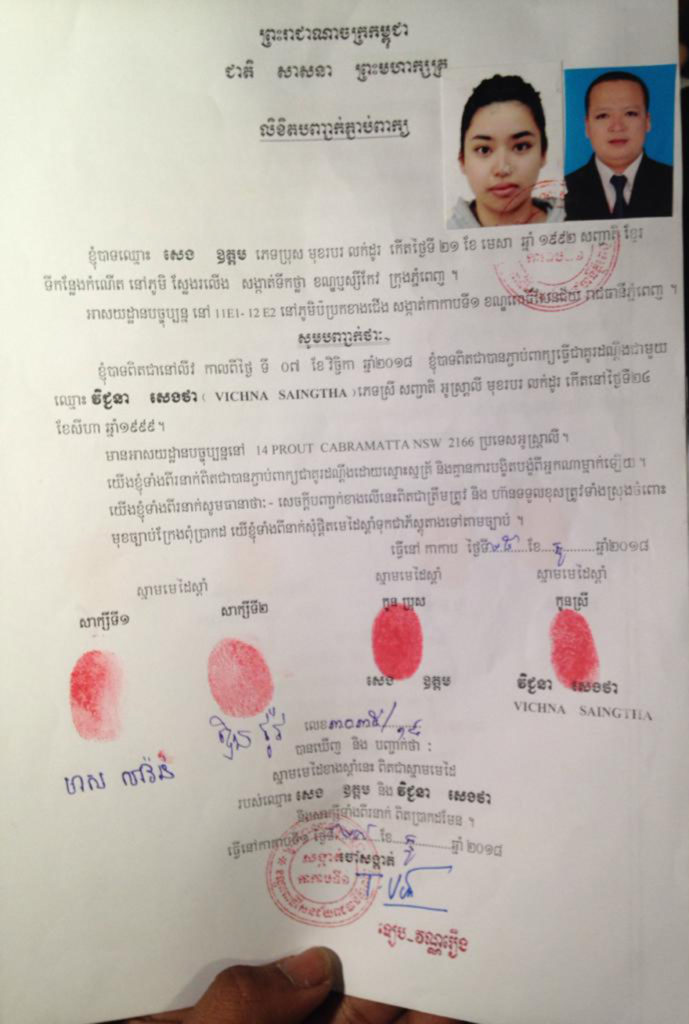 ព្រះរាជាណាចក្រកម្ពុជា
ជាតិ សាសនា ព្រះមហាក្សត្រ
លិខិតបញ្ជាក់ភ្ជាប់ពាក្យ
ខ្ញុំបាទឈ្មោះ សេង ឧត្តម ភេទប្រុស មុខរបរ លក់ដូរ កើតថ្ងៃទី ២១ ខែ មេសា ឆ្នាំ ១៩៩២ សញ្ជាតិ ខ្មែរ
ទីកន្លែងកំណើត នៅភូមិ ស្លែងរលើង សង្កាត់ទឹកថ្លា ខណ្ឌឫស្សីកែវ ក្រុងភ្នំពេញ ។
អាសយដ្ឋានបច្ចុប្បន្ន នៅ 11E1- 12 E2 នៅភូមិប៉ប្រកខាងជើង សង្កាត់កាកាបទី១ ខណ្ឌពោធិ៍សែនជ័យ រាជធានីភ្នំពេញ ។
សូមបញ្ជាក់ថា:~
ខ្ញុំបាទពិតជានៅលីវ កាលពីថ្ងៃ ទី ០៧ ខែវិច្ឆិកា ឆ្នាំ២០១៨ ខ្ញុំបាទពិតជាបានភ្ជាប់ពាក្យធ្វើជាគូរដណ្តឹងជាមួយ
ឈ្មោះ វិជ្ជនា សេងថា ( VICHNA SAINGTHA ) ភេទស្រី សញ្ជាតិ អូស្ត្រាលី មុខរបរ លក់ដូរ កើតនៅថ្ងៃទី២៤
ខែសីហា ឆ្នាំ១៩៩៩។
មានអាសយដ្ឋានបច្ចុប្បន្ននៅ 14 PROUT CABRAMATTA NSW 2166 ប្រទេសអូស្ត្រាលី។
យើងខ្ញុំទាំងពីរនាក់ពិតជាបានភ្ជាប់ពាក្យជាគូរដណ្តឹងដោយស្មោះស្ម័គ្រ និងគ្មានការបង្ខិតបង្ខំពីអ្នកណាម្នាក់ឡើយ ។
យើងខ្ញុំទាំងពីរនាក់សូមធានាថា:- សេចក្តីបញ្ជាក់ខាងលើនេះពិតជាត្រឹមត្រូវ និង ហ៊ានទទួលខុសត្រូវទាំងស្រុងចំពោះ
មុខច្បាប់ក្រែងពុំប្រាកដ យើខ្ញុំទាំងពីរនាក់សុំផ្តិតមេដៃស្តាំទុកជាភ័ស្តុតាងទៅតាមច្បាប់ ។
ធ្វើនៅ កាកាប ថ្ងៃទី ខែ ធ្នូ ឆ្នាំ២០១៨
ស្នាមមេដៃស្តាំ ស្នាមមេដៃស្តាំ ស្នាមមេដៃស្តាំ
សាក្សីទី១ សាក្សីទី២ កូនប្រុស កូនស្រី
សេង ឧត្តម វិជ្ជនា សេងថា
VICHNA SAINGTHA
លេខ
បានឃើញ និង បញ្ជាក់ថា :
ស្នាមមេដៃខាងស្តាំនេះ ពិតជាស្នាមមេដៃ
របស់ឈ្មោះ សេង ឧត្តម និង វិជ្ជនា សេងថា
និងសាក្សីទាំងពីរនាក់ ពិតប្រាកដមែន ។
ធ្វើនៅកាកាបទី១ ថ្ងៃទី ខែ ធ្នូ ឆ្នាំ ២០១៨
ចៅសង្កាត់
សង្កាត់
កាកាបទី១